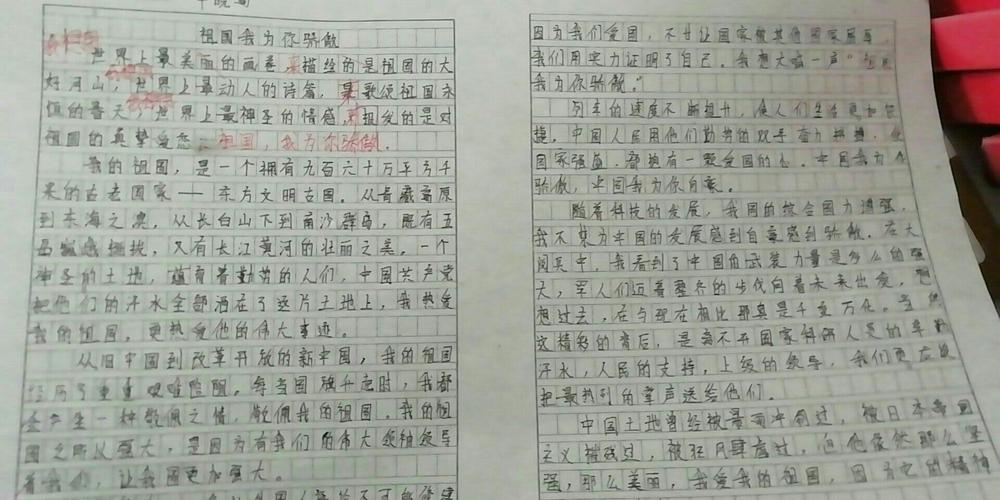 祖国我为你骄傲
世界上最美丽的画卷,描绘的是祖国的大
好河山,世界上最动人的诗篇,是歌颂祖国永
恒的春天,世界上最神圣的情感,抒发的是对
祖国的真挚爱恋:祖国,我为你骄傲。
我的祖国,是一个拥有九百六十万平方千
米的古老国家——东方文明古国。从青藏高原
到东海之滨,从长白山下到南沙群岛,既有五
岳巍峨,又有长江黄河的壮丽之美。一个
神圣的土地,蕴育着勤劳的人们,中国共产党
把他们的汗水全部洒在了这片土地上,我热爱
我的祖国,更热爱他的伟大事迹。
从旧中国到改革开放的新中国,我的祖国
经历了重重艰难险阻,每当国旗升起时,我都
会产生一种敬佩之情,敬佩我的祖国。我的祖
国之所以强大,是因为有我们的伟大领袖领导
着我们,让我国更加强大。
因为我们爱国,不甘让国家被其他国家
我们用实力证明了自己。我想大喊一声“祖国
我为你骄傲。”
列车的速度不断提升,使人们生活更加便
捷。中国人民用他们勤劳的双手奋力拼搏,使
国家强盛,都拥有一颗爱国的心。中国我为你
骄傲,中国我为你自豪。
随着科技的发展,我国的综合国力增强,
我不禁为中国的发展感到自豪感到骄傲。在大
阅兵中,我看到了中国的武装力量是多么的强
大,军人们迈着整齐的步伐向着未来出发,
想过去,在与现在相比那真是千变万化。当
这精彩的背后,是离不开国家科研人员的辛勤
汗水,人民的支持,上级的领导,我们更应该
把最热烈的掌声送给他们。
中国土地曾经被暴雨冲刷过,被日本帝国
主义摧残过,被狂风肆虐过,但他依然那么坚
强,那么美丽,我爱我的祖国,因为它的精神